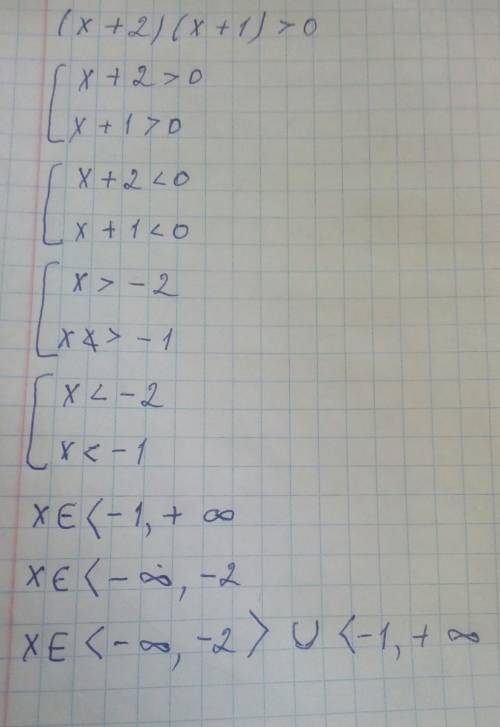 (x + 2) (x + 1) > 0
x + 2 > 0
x + 1 > 0
x + 2 < 0
x + 1 < 0
x > - 2
x > - 1
x < - 2
x < - 1
x ∈ ⟨ - 1, + ∞
x ∈ ⟨ - ∞, - 2
x ∈ ⟨ - ∞, - 2 ⟩ ∪ ⟨ - 1, + ∞